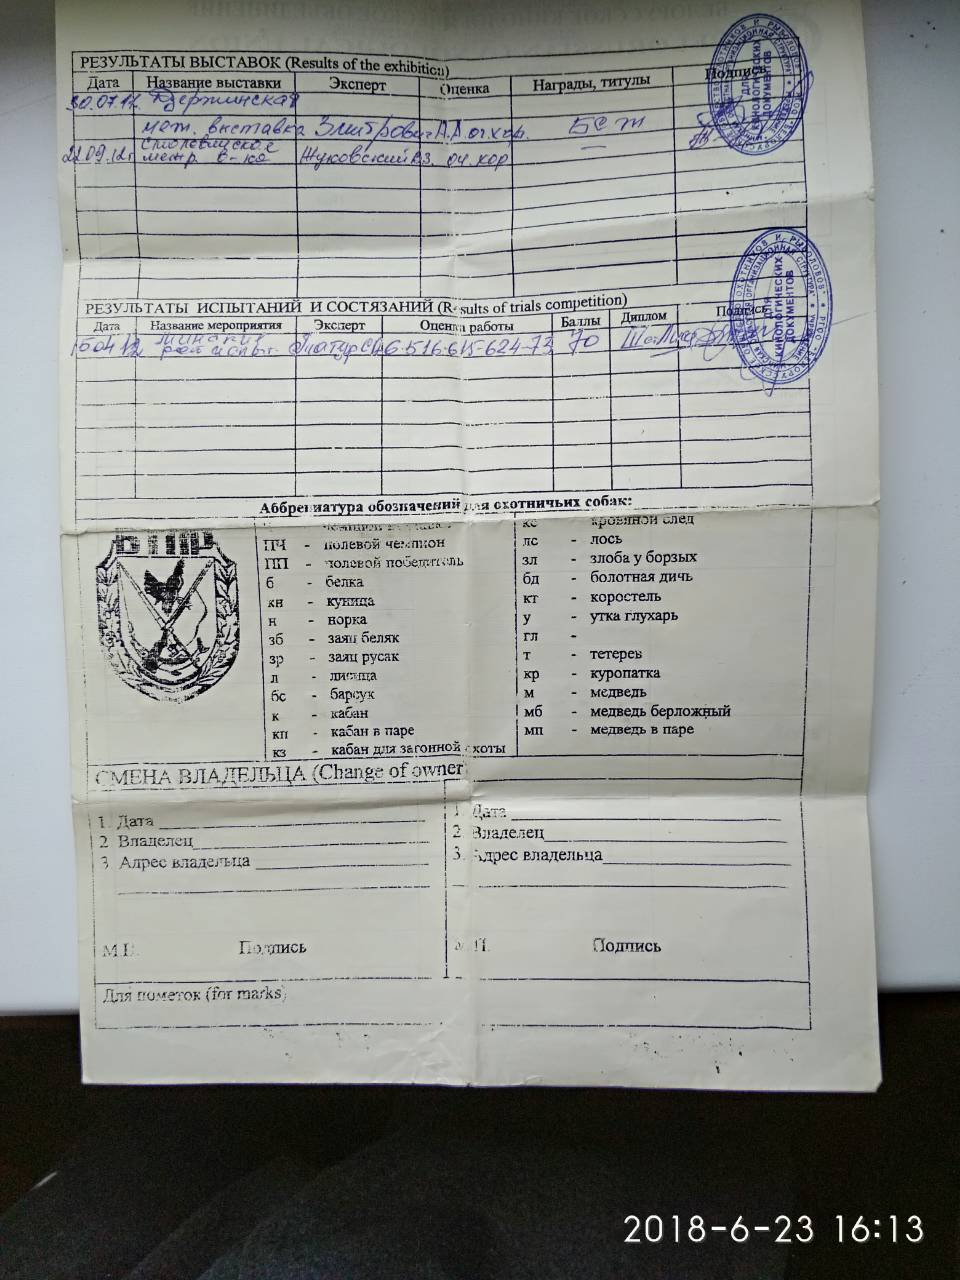 РЕЗУЛЬТАТЫ ВЫСТАВОК (Results of the exhibition)
Дата Название выставки Эксперт Оценка Награды, титулы Подпись
Дзержинская
меж. выставка Змитрович А.А. оч.хор.
Смолевичское
Жуковский оч хор
РЕЗУЛЬТАТЫ ИСПЫТАНИЙ И СОСТЯЗАНИЙ (Results of trials competition)
Дата Название мероприятия Эксперт Оценка работы Баллы Диплом Подпись
70
ДЛЯ КИНОЛОГИЧЕСКИХ ДОКУМЕНТОВ
ДЛЯ КИНОЛОГИЧЕСКИХ ДОКУМЕНТОВ
Аббревиатура обозначений для охотничьих собак:
ПЧ - полевой чемпион
ПП - полевой победитель
б - белка
кн - куница
н - норка
зб - заяц беляк
зр - заяц русак
л - лисица
бс - барсук
к - кабан
кп - кабан в паре
кз - кабан для загонной охоты
кс - кровяной след
лс - лось
зл - злоба у борзых
бд - болотная дичь
кт - коростель
у - утка глухарь
гл -
т - тетерев
кр - куропатка
м - медведь
мб - медведь берложный
мп - медведь в паре
СМЕНА ВЛАДЕЛЬЦА (Change of owner)
1. Дата
2 Владелец
3 Адрес владельца
М.П. Подпись
1. Дата
2. Владелец
3. Адрес владельца
М.П. Подпись
Для пометок (for marks)
2018-6-23 16:13